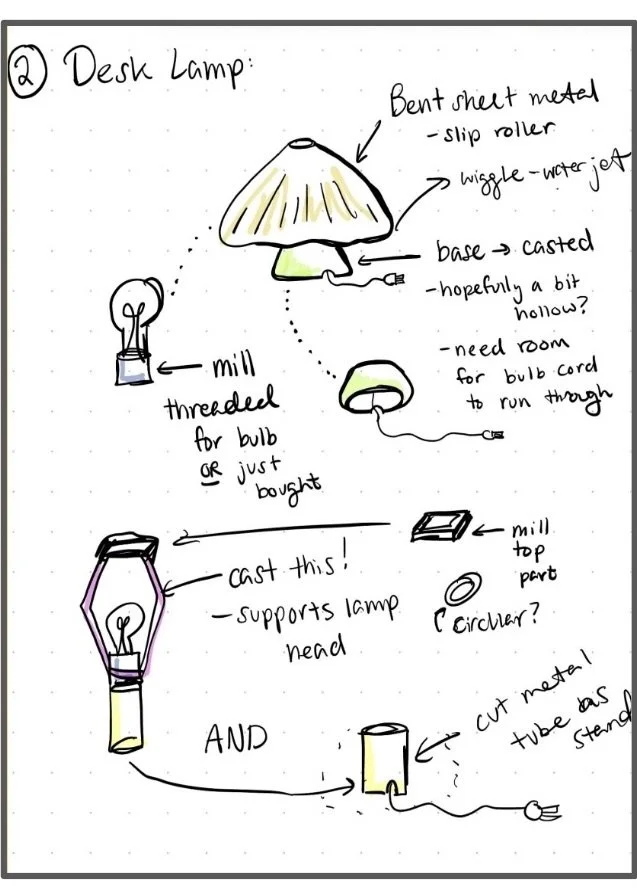 ② Desk Lamp:
Bent sheet metal
- slip roller
wiggle - water jet
base → casted
- hopefully a bit
hollow?
- need room
for bulb cord
to run through
mill
threaded
for bulb
OR just
bought
mill
top
part
cast this!
- supports lamp
head
circular?
cut metal
tube as
stand
AND